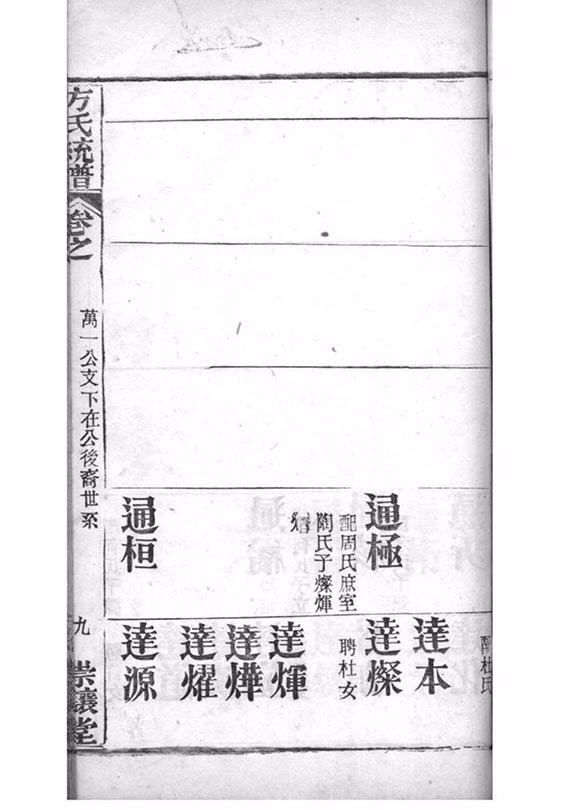 通極
配周氏庶室
陶氏子燦煇
通桓
配杜氏
達本
達燦
聘杜女
達煇
達燁
達燿
達源
方氏統譜
卷之
萬一公支下在公後裔世系
九
崇讓堂